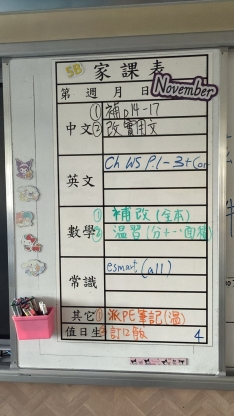 5B 家課表
第 週 月 日
November
① 補 p14-17
中文 ② 改實用文
英文 Ch WS P.1-3 + Cor
① 補改 (全本)
數學 ② 溫習 (分+‥面積)
常識 esmart (all)
其它 ① 派PE筆記 (溫)
值日生 ② 訂口飯 4